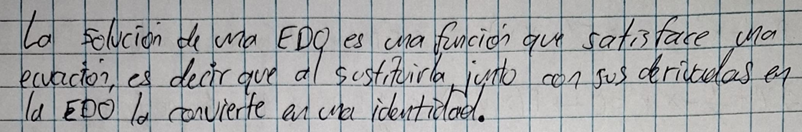 La solución de una EDO es una función que satisface una
ecuación, es decir que al sustituirla, junto con sus derivadas en
la EDO la convierte en una identidad.